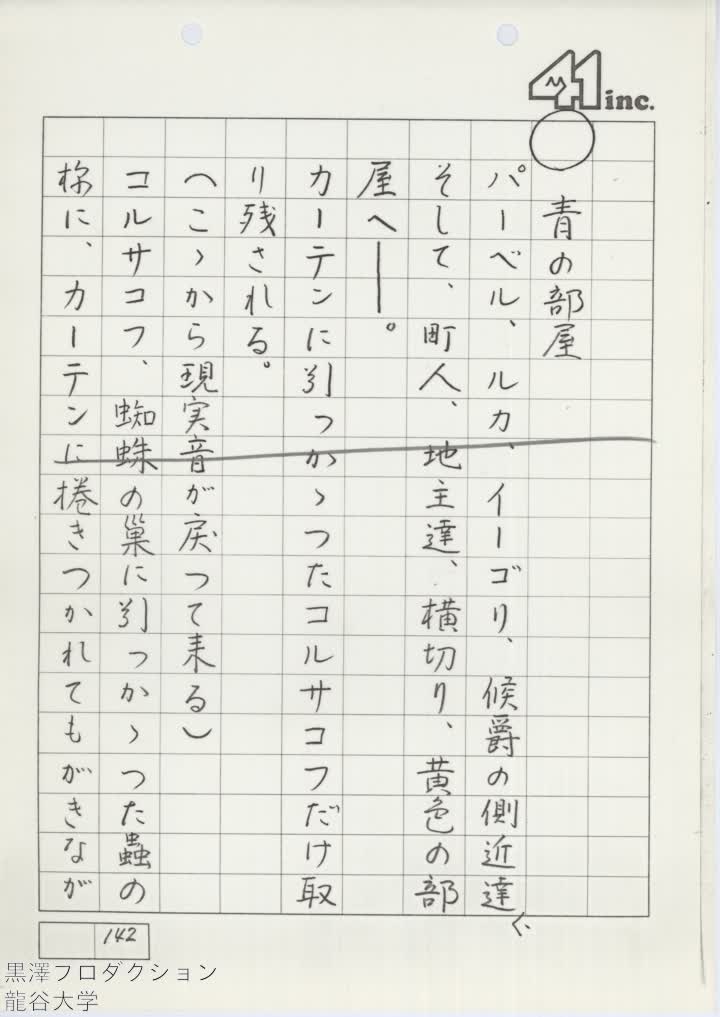 41 inc.
○ 青の部屋
パーベル、ルカ、イーゴリ、候爵の側近達、
そして、町人、地主達、横切り、黄色の部
屋へ──。
カーテンに引っかゝつたコルサコフだけ取
り残される。
(こゝから現実音が戻つて来る)
コルサコフ、蜘蛛の巣に引っかゝつた蟲の
様に、カーテンに捲きつかれてもがきなが
142
黒澤プロダクション
龍谷大学